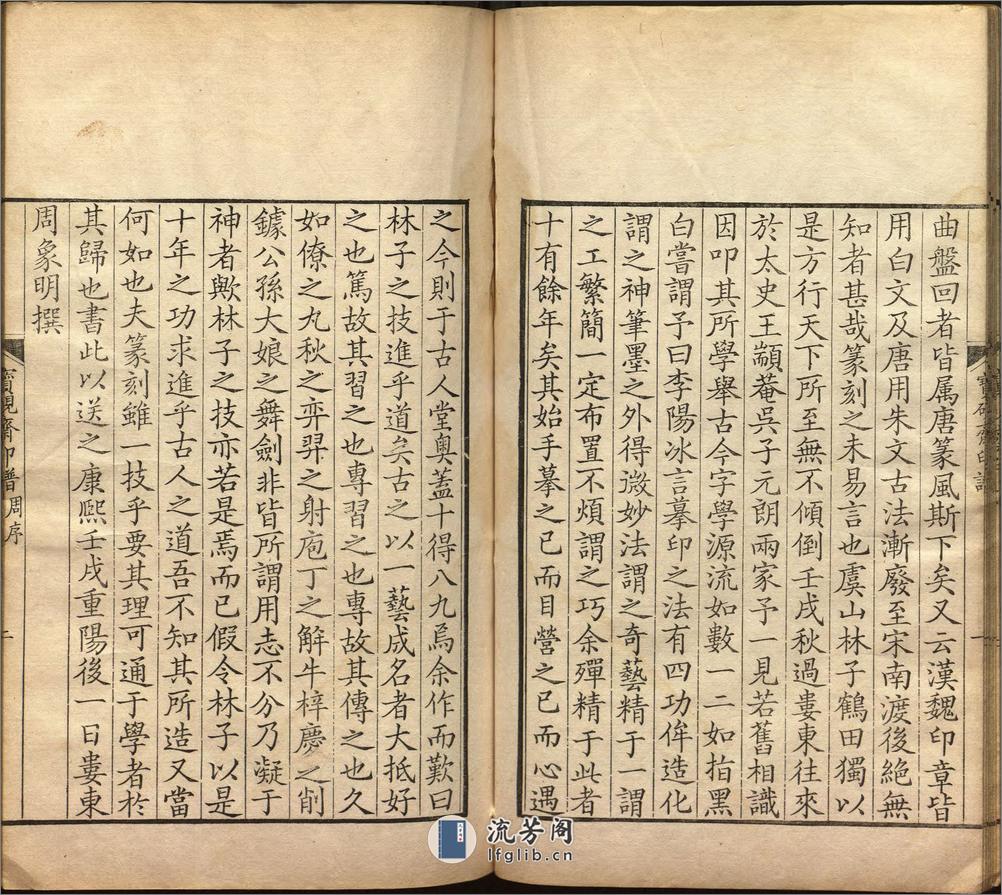 曲盤回者皆属唐篆風斯下矣又云漢魏印章皆
用白文及唐用朱文古法漸廢至宋南渡後絕無
知者甚哉篆刻之未易言也虞山林子鶴田獨以
是方行天下所至無不傾倒壬戌秋過婁東往來
於太史王顓菴吳子元朗兩家予一見若舊相識
因叩其所學舉古今字學源流如數一二如指黑
白嘗謂予曰李陽冰言摹印之法有四功侔造化
謂之神筆墨之外得微妙法謂之奇藝精于一謂
之工繁簡一定布置不煩謂之巧余殫精于此者
十有餘年矣其始手摹之已而目營之已而心遇
之今則于古人堂奧蓋十得八九焉余作而歎曰
林子之技進乎道矣古之以一藝成名者大抵好
之也篤故其習之也專習之也專故其傳之也久
如僚之丸秋之弈羿之射庖丁之解牛梓慶之削
鐻公孫大娘之舞劍非皆所謂用志不分乃凝于
神者歟林子之技亦若是焉而已假令林子以是
十年之功求進乎古人之道吾不知其所造又當
何如也夫篆刻雖一技乎要其理可通于學者於
其歸也書此以送之康熙壬戌重陽後一日婁東
周象明撰
寶硯齋印譜 周序
二
流芳阁
lfglib.cn